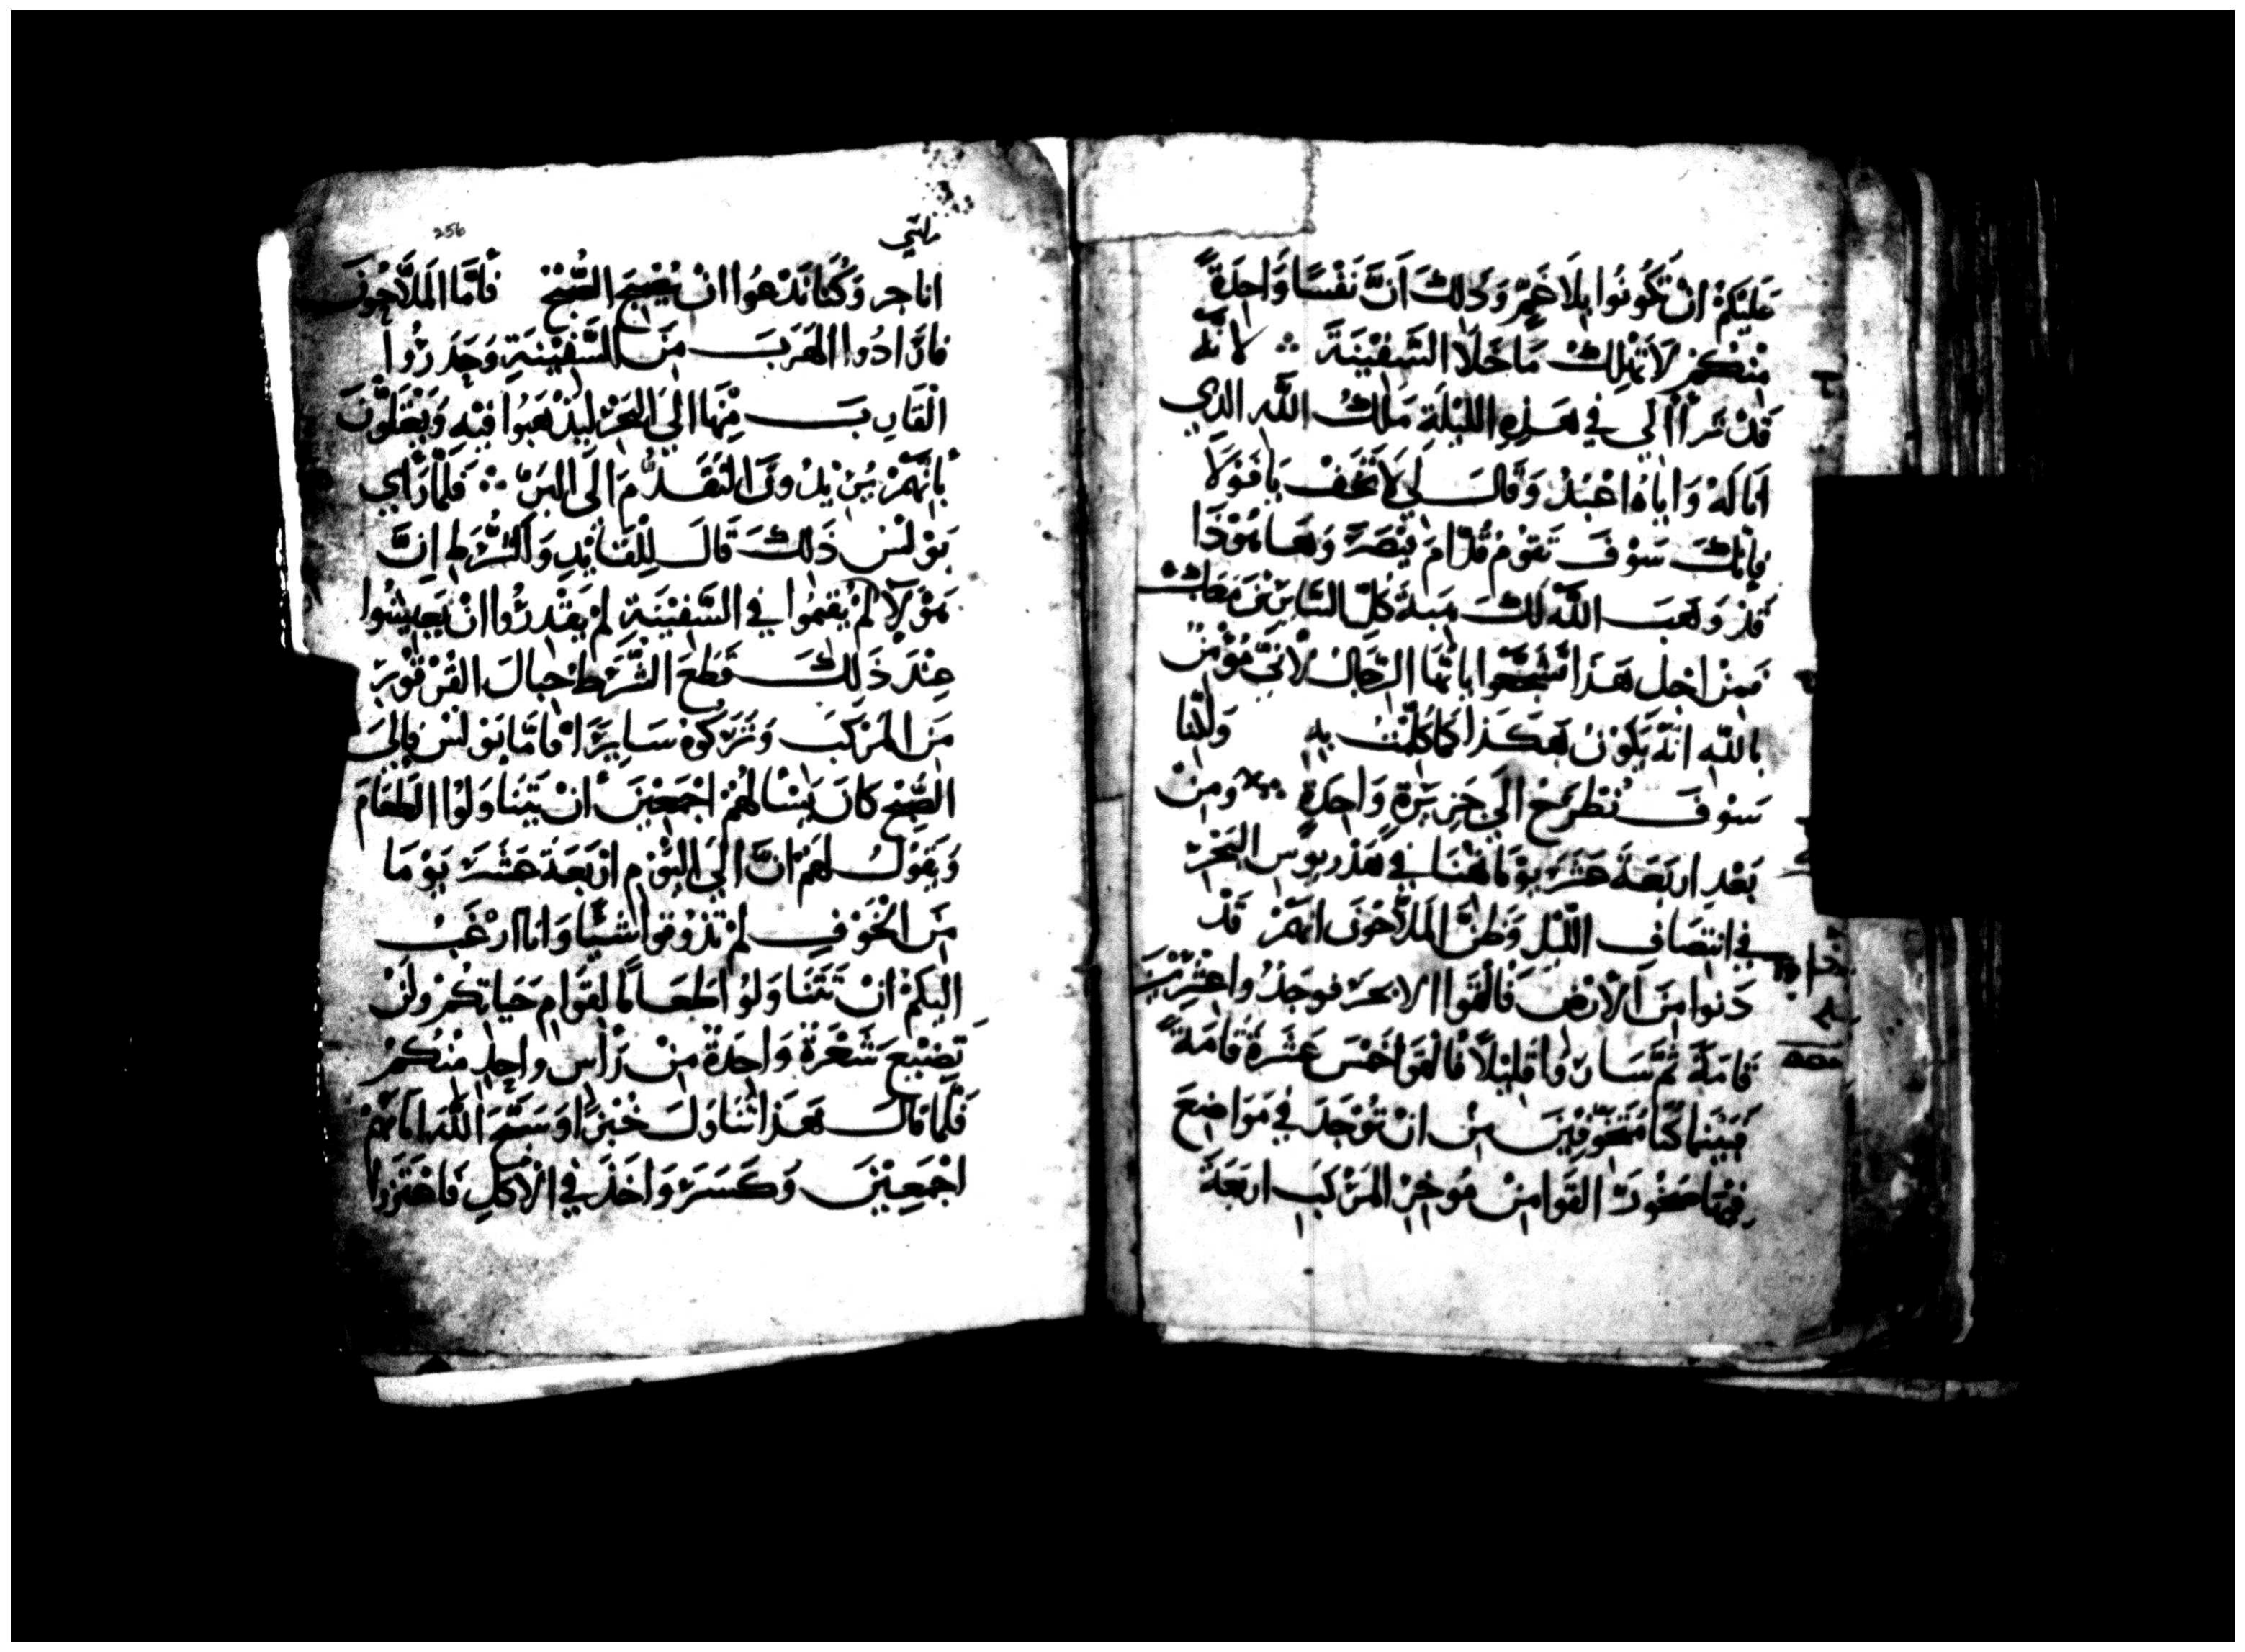 عَلَيْكُمْ انْ تَكُونُوا بِلَا غَمٍّ وَذَلِكَ اَنَّ نَفْسًا وَاحِدَةً
مِنْكُمْ لَا تَهْلِكْ مَا خَلَا السَّفِيْنَةَ ∴ لانه
قَدْ تَرَأْأَلِي فِي هَذِهِ اللَّيْلَةِ مَلَكُ اللَّهِ الذي
اَنَا لَهُ وَايَاهُ اعْبُدُ وَقَالَ لِي لَا تَخَفْ يَا فَوْلَا
فَإنَّكَ سَوْفَ تَقومُ قُدَّامَ قَيْصَرَ وَهَا هُوَذَا
قَدْ وَهَبَ اللَّهُ لَكَ هِبةً كُلَّ السَّايِرِيْنَ مَعَكْ
فَمِنْ اجْلِ هَذَا تَشَجَّعُوا يا ايُّهَا الرِّجَالُ لِانِّي مُؤْمِنٌ
بِاللَّهِ انَّهُ يَكُوْنُ هَكَذَا كَمَا كُلِّمْتُ بِهِ وَلَكِنَّا
سَوْفَ نُنْطَرَحْ الَى جَزِيْرَةٍ وَاحِدَةٍ ومِنْ
بَعْدِ اربَعَةَ عَشَرَ يَوْمًا تُهْنَا فِي هَدْرِيوُس البَحْرِ
فِي انتِصَافِ اللَّيْلِ وَظَنَّ المَلَّاحُونَ انَهُمْ قَدْ
دَنوا مِنَ الْارْضِ فَالْقَوا الابحرَ فوَجَدُوا عِشْرِيْنَ
قَامَةً ثُمَّ سَارُوا قَلِيْلًا فَالْقَوا خَمْسَ عَشْرَةَ قَامَةً
فَبَيْنَما كُنَّا مُتَخَوِفِيْنَ مِنْ انْ تُوْجَدَ فِي مَوَاضِعَ
فِيْهَا صَخُورٌ القَوا مِنْ مُوخِرِ المَرْكَبِ اربَعَةَ
256
اناجر وَكُنَّا نَدْعُوا انْ يُصْبِحَ الصُّبْحْ فَأمَّا المَلَّاحُونَ
فارَادُوا الهَرَبَ مِنَ السَّفِيْنَةِ وَحَدَرُوا
الْقَارِبَ مِنْهَا الَى البَحْرِ لِيَذْهَبُوا فِيْهِ وَيَعْتَلُّوْنَ
بِأنَّهُمْ يُرِيْدُونَ التَقَدُّمَ الَى البَرِّ ∴ فَلَمَّا رَأي
بَوْلسُ ذَلِكَ قَالَ لِلْقَايْدِ وَالشُّرَطِ انَّ
هَوْلَآ لَمْ يُقِيمُوا فِي السَّفِيْنَةِ لَمْ يَقْدِرُوا انْ يَعِيْشُوا
عِنْدَ ذَلِكَ قَطَعَ الشُّرَطُ حِبالَ القُرْقُورِ
مِنَ المَرْكَبِ وَتَرَكوهُ سَايِرًا فأمَّا بَوْلسُ فإلَى
الصُّبْحِ كانَ يَسْالهُمْ اجْمَعِيْنَ أنْ يَتَنَاوَلُوْا الطَعَامَ
وَيَقُولُ لَهُمْ انَّ الَى اليَوْمِ ارْبَعَةَ عَشَرَ يَوْمَا
مِنَ الْخَوْفِ لَمْ تَذُوْقوا شَيْئًا وَانا ارْغَبُ
اليكُمْ انْ تَتَنَاوَلُوْا طَعَامًا لِقَوَامِ حَيَاتِكُمْ ولَنْ
تَضِيْعَ شَعْرَةٌ وَاحِدَةٌ مِنْ رَأْسِ وَاحِدٍ مِنْكُمْ
فَلَمَّا قالَ هَذَا تَنَاوَلَ خُبْزًا وَسَبَّحَ اللَّهَ امَامَهُمْ
اجْمَعِيْنَ وَكَسَرَ وَاخَذَ فِي الْاكْلِ فَاعْتَزوا